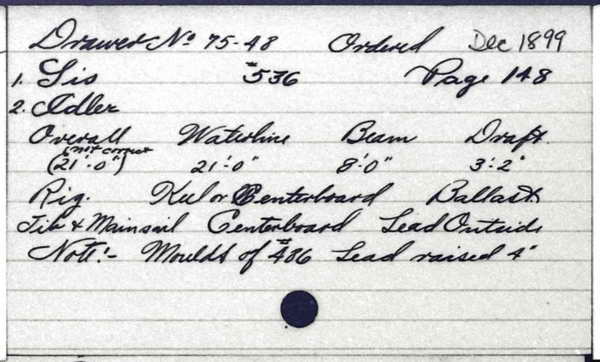 Drawer No 75-48 Ordered Dec 1899
1. Sis #536 Page 148
2. Adler
Overall Waterline Beam Draft
(not correct)
(21'-0") 21'-0" 8'-0" 3'-2"
Rig. Keel or Centerboard Ballast
Jib & Mainsail Centerboard Lead Outside
Note:- Moulds of #486 Lead raised 4"